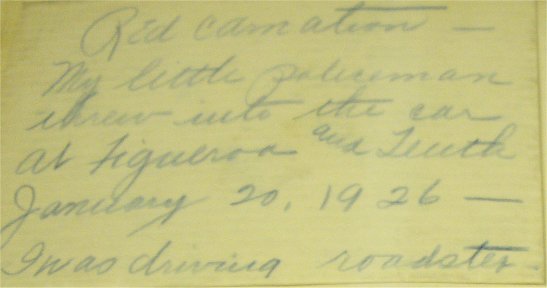 Red carnation —
My little policeman
threw into the car
at Figueroa and Tenth
January 20, 1926 —
I was driving roadster.